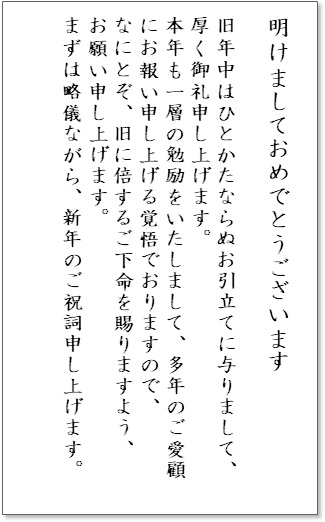 明けましておめでとうございます
旧年中はひとかたならぬお引立てに与りまして、
厚く御礼申し上げます。
本年も一層の勉励をいたしまして、多年のご愛顧
にお報い申し上げる覚悟でおりますので、
なにとぞ、旧に倍するご下命を賜りますよう、
お願い申し上げます。
まずは略儀ながら、新年のご祝詞申し上げます。